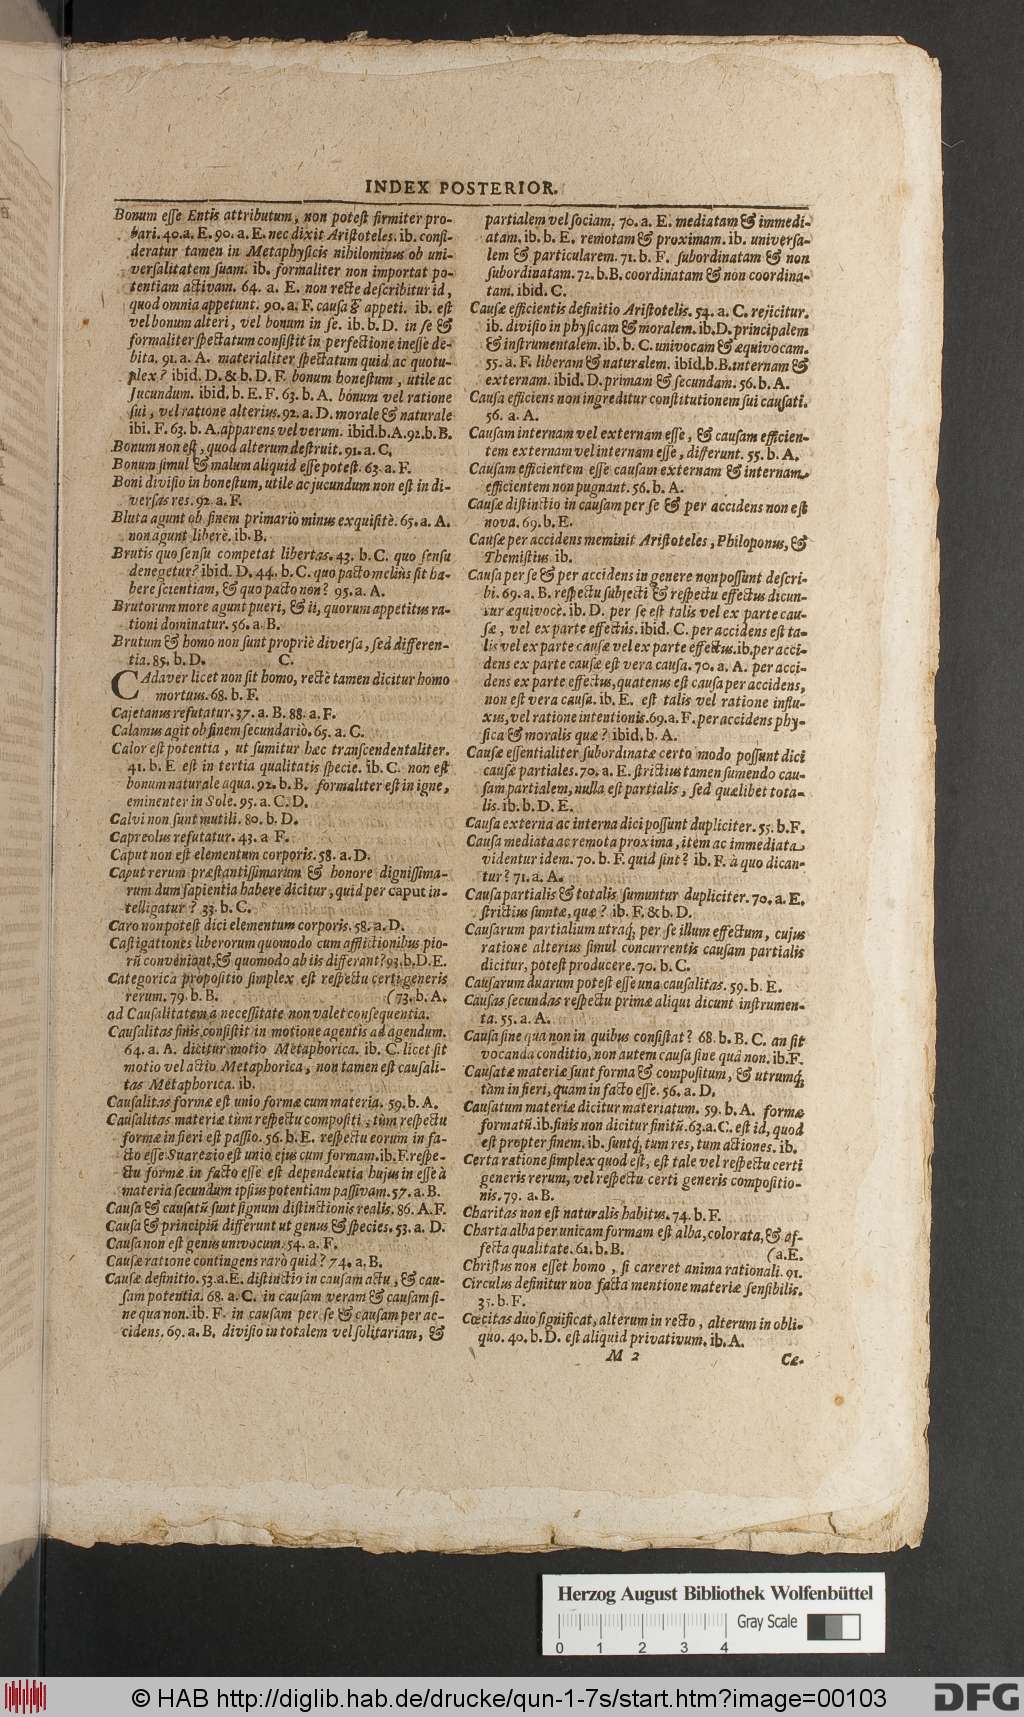 INDEX POSTERIOR.
Bonum eſſe Entis attributum, non poteſt firmiter pro-
bari. 40.a. E. 90. a. E. nec dixit Ariſtoteles. ib. conſi-
deratur tamen in Metaphyſicis nihilominus ob uni-
verſalitatem ſuam. ib. formaliter non importat po-
tentiam activam. 64. a. E. non recte deſcribitur id,
quod omnia appetunt. 90. a. F. cauſa & appeti. ib. eſt
vel bonum alteri, vel bonum in ſe. ib. b. D. in ſe &
formaliter ſpectatum conſiſtit in perfectione ineſſe de-
bita. 91. a. A. materialiter ſpectatum quid ac quotu-
plex? ibid. D. & b. D. F. bonum honeſtum, utile ac
Jucundum. ibid. b. E. F. 63. b. A. bonum vel ratione
ſui, vel ratione alterius. 92. a. D. morale & naturale
ibi. F. 63. b. A. apparens vel verum. ibid. b. A. 92. b. B.
Bonum non eſt, quod alterum deſtruit. 91. a. C.
Bonum ſimul & malum aliquid eſſe poteſt. 63. a. F.
Boni diviſio in honeſtum, utile ac jucundum non eſt in di-
verſas res. 92. a. F.
Bluta agunt ob finem primariò minus exquiſitè. 65. a. A.
non agunt liberè. ib. B.
Brutis quo ſenſu competat libertas. 43. b. C. quo ſenſu
denegetur? ibid. D. 44. b. C. quo pacto meliùs ſit ha-
bere ſcientiam, & quo pacto non? 95. a. A.
Brutorum more agunt pueri, & ii, quorum appetitus ra-
tioni dominatur. 56. a. B.
Brutum & homo non ſunt propriè diverſa, ſed differen-
tia. 85. b. D.
C.
CAdaver licet non ſit homo, rectè tamen dicitur homo
mortuus. 68. b. F.
Cajetanus refutatur. 37. a. B. 88. a. F.
Calamus agit ob finem ſecundariò. 65. a. C.
Calor eſt potentia, ut ſumitur hæc tranſcendentaliter.
41. b. E eſt in tertia qualitatis ſpecie. ib. C. non eſt
bonum naturale aqua. 92. b. B. formaliter eſt in igne,
eminenter in Sole. 95. a. C. D.
Calvi non ſunt mutili. 80. b. D.
Capreolus refutatur. 43. a F.
Caput non eſt elementum corporis. 58. a. D.
Caput rerum præſtantiſſimarum & honore digniſſima-
rum dum ſapientia habere dicitur, quid per caput in-
telligatur? 33. b. C.
Caro non poteſt dici elementum corporis. 58. a. D.
Caſtigationes liberorum quomodo cum afflictionibus pio-
rū conveniant, & quomodo ab iis differant? 93. b. D. E.
Categorica propoſitio ſimplex eſt reſpectu certi generis
rerum. 79. b. B. (73. b. A.
ad Cauſalitatem a neceſſitate non valet conſequentia.
Cauſalitas finis conſiſtit in motione agentis ad agendum.
64. a. A. dicitur motio Metaphorica. ib. C. licet ſit
motio vel actio Metaphorica, non tamen eſt cauſali-
tas Metaphorica. ib.
Cauſalitas formæ eſt unio formæ cum materia. 59. b. A.
Cauſalitas materiæ tùm reſpectu compoſiti, tùm reſpectu
formæ in fieri eſt paſſio. 56. b. E. reſpectu eorum in fa-
cto eſſe Suarezio eſt unio ejus cum formam. ib. F. reſpe-
ctu formæ in facto eſſe eſt dependentia hujus in eſſe à
materia ſecundum ipſius potentiam paſſivam. 57. a. B.
Cauſa & cauſatū ſunt ſignum diſtinctionis realis. 86. A. F.
Cauſa & principiū differunt ut genus & ſpecies. 53. a. D.
Cauſa non eſt genus univocum. 54. a. F.
Cauſæ ratione contingens rarò quid? 74. a. B.
Cauſæ definitio. 53. a. E. diſtinctio in cauſam actu, & cau-
ſam potentia. 68. a. C. in cauſam veram & cauſam ſi-
ne qua non. ib. F. in cauſam per ſe & cauſam per ac-
cidens. 69. a. B. diviſio in totalem vel ſolitariam, &
partialem vel ſociam. 70. a. E. mediatam & immedi-
atam. ib. b. E. remotam & proximam. ib. univerſa-
lem & particularem. 71. b. F. ſubordinatam & non
ſubordinatam. 72. b. B. coordinatam & non coordina-
tam. ibid. C.
Cauſæ efficientis definitio Ariſtotelis. 54. a. C. rejicitur.
ib. diviſio in phyſicam & moralem. ib. D. principalem
& inſtrumentalem. ib. b. C. univocam & æquivocam.
55. a. F. liberam & naturalem. ibid. b. B. internam &
externam. ibid. D. primam & ſecundam. 56. b. A.
Cauſa efficiens non ingreditur conſtitutionem ſui cauſati.
56. a. A.
Cauſam internam vel externam eſſe, & cauſam efficien-
tem externam vel internam eſſe, differunt. 55. b. A.
Cauſam efficientem eſſe cauſam externam & internam
efficientem non pugnant. 56. b. A.
Cauſæ diſtinctio in cauſam per ſe & per accidens non eſt
nova. 69. b. E.
Cauſæ per accidens meminit Ariſtoteles, Philoponus, &
Themiſtius ib.
Cauſa per ſe & per accidens in genere non poſſunt deſcri-
bi. 69. a. B. reſpectu ſubjecti & reſpectu effectus dicun-
tur æquivocè. ib. D. per ſe eſt talis vel ex parte cau-
ſæ, vel ex parte effectûs. ibid. C. per accidens eſt ta-
lis vel ex parte cauſæ vel ex parte effectus. ib. per acci-
dens ex parte cauſæ eſt vera cauſa. 70. a. A. per acci-
dens ex parte effectus, quatenus eſt cauſa per accidens,
non eſt vera cauſa. ib. E. eſt talis vel ratione influ-
xus, vel ratione intentionis. 69. a. F. per accidens phy-
ſica & moralis quæ? ibid. b. A.
Cauſæ eſſentialiter ſubordinatæ certo modo poſſunt dici
cauſæ partiales. 70. a. E. ſtrictius tamen ſumendo cau-
ſam partialem, nulla eſt partialis, ſed quælibet tota-
lis. ib. b. D. E.
Cauſa externa ac interna dici poſſunt dupliciter. 55. b. F.
Cauſa mediata ac remota proxima, item ac immediata
videntur idem. 70. b. F. quid ſint? ib. F. à quo dican-
tur? 71. a. A.
Cauſa partialis & totalis ſumuntur dupliciter. 70. a. E.
ſtrictius ſumtæ, quæ? ib. F. & b. D.
Cauſarum partialium utraq; per ſe illum effectum, cujus
ratione alterius ſimul concurrentis cauſam partialis
dicitur, poteſt producere. 70. b. C.
Cauſarum duarum poteſt eſſe una cauſalitas. 59. b. E.
Cauſas ſecundas reſpectu primæ aliqui dicunt inſtrumen-
ta. 55. a. A.
Cauſa ſine qua non in quibus conſiſtat? 68. b. B. C. an ſit
vocanda conditio, non autem cauſa ſine quâ non. ib. F.
Cauſatæ materiæ ſunt forma & compoſitum, & utrumq;
tàm in fieri, quàm in facto eſſe. 56. a. D.
Cauſatum materiæ dicitur materiatum. 59. b. A. formæ
formatū. ib. finis non dicitur finitū. 63. a. C. eſt id, quod
eſt propter finem. ib. ſuntq; tum res, tum actiones. ib.
Certa ratione ſimplex quod eſt, eſt tale vel reſpectu certi
generis rerum, vel reſpectu certi generis compoſitio-
nis. 79. a. B.
Charitas non eſt naturalis habitus. 74. b. F.
Charta alba per unicam formam eſt alba, colorata, & af-
fecta qualitate. 62. b. B. (a. E.
Chriſtus non eſſet homo, ſi careret anima rationali. 91.
Circulus definitur non facta mentione materiæ ſenſibilis.
35. b. F.
Cœcitas duo ſignificat, alterum in recto, alterum in obli-
quo. 40. b. D. eſt aliquid privativum. ib. A.
M 2
Ce-
Herzog August Bibliothek Wolfenbüttel
Gray Scale
0 1 2 3 4
© HAB http://diglib.hab.de/drucke/qun-1-7s/start.htm?image=00103
DFG